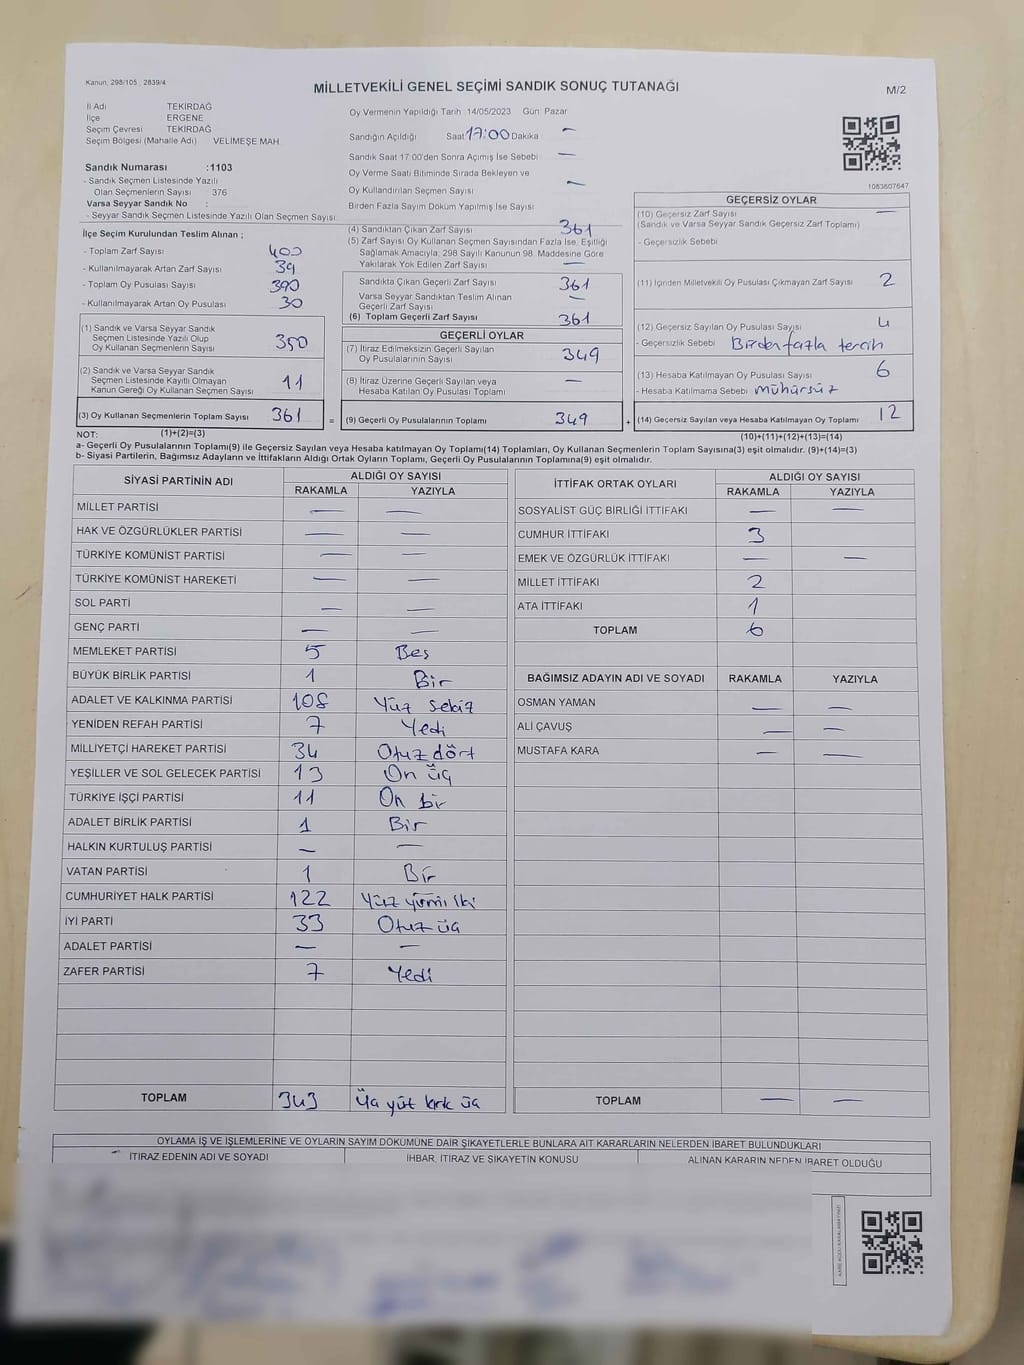 Kanun, 298/105 , 2839/4
MİLLETVEKİLİ GENEL SEÇİMİ SANDIK SONUÇ TUTANAĞI
M/2
İl Adı TEKİRDAĞ
İlçe ERGENE
Seçim Çevresi TEKİRDAĞ
Seçim Bölgesi (Mahalle Adı) VELİMEŞE MAH.
Sandık Numarası :1103
- Sandık Seçmen Listesinde Yazılı
Olan Seçmenlerin Sayısı 376
Varsa Seyyar Sandık No :
- Seyyar Sandık Seçmen Listesinde Yazılı Olan Seçmen Sayısı:
Oy Vermenin Yapıldığı Tarih :14/05/2023 Gün: Pazar
Sandığın Açıldığı Saat 17:00 Dakika —
Sandık Saat 17:00'den Sonra Açımış İse Sebebi —
Oy Verme Saati Bitiminde Sırada Bekleyen ve
Oy Kullandırılan Seçmen Sayısı —
Birden Fazla Sayım Döküm Yapılmış İse Sayısı
1083607647
İlçe Seçim Kurulundan Teslim Alınan ;
- Toplam Zarf Sayısı 400
- Kullanılmayarak Artan Zarf Sayısı 39
- Toplam Oy Pusulası Sayısı 390
- Kullanılmayarak Artan Oy Pusulası 30
(1) Sandık ve Varsa Seyyar Sandık
Seçmen Listesinde Yazılı Olup
Oy Kullanan Seçmenlerin Sayısı 350
(2) Sandık ve Varsa Seyyar Sandık
Seçmen Listesinde Kayıtlı Olmayan
Kanun Gereği Oy Kullanan Seçmen Sayısı 11
(3) Oy Kullanan Seçmenlerin Toplam Sayısı 361 =
(1)+(2)=(3)
(4) Sandıktan Çıkan Zarf Sayısı 361
(5) Zarf Sayısı Oy Kullanan Seçmen Sayısından Fazla İse, Eşitliği
Sağlamak Amacıyla, 298 Sayılı Kanunun 98. Maddesine Göre
Yakılarak Yok Edilen Zarf Sayısı —
Sandıkta Çıkan Geçerli Zarf Sayısı 361
Varsa Seyyar Sandıktan Teslim Alınan
Geçerli Zarf Sayısı —
(6) Toplam Geçerli Zarf Sayısı 361
GEÇERLİ OYLAR
(7) İtiraz Edilmeksizin Geçerli Sayılan
Oy Pusulalarının Sayısı 349
(8) İtiraz Üzerine Geçerli Sayılan veya
Hesaba Katılan Oy Pusulası Toplamı —
(9) Geçerli Oy Pusulalarının Toplamı 349 +
GEÇERSİZ OYLAR
(10) Geçersiz Zarf Sayısı —
(Sandık ve Varsa Seyyar Sandık Geçersiz Zarf Toplamı)
- Geçersizlik Sebebi
(11) İçinden Milletvekili Oy Pusulası Çıkmayan Zarf Sayısı 2
(12) Geçersiz Sayılan Oy Pusulası Sayısı 4
- Geçersizlik Sebebi Birden fazla tercih
(13) Hesaba Katılmayan Oy Pusulası Sayısı 6
- Hesaba Katılmama Sebebi mühürsüz
(14) Geçersiz Sayılan veya Hesaba Katılmayan Oy Toplamı 12
(10)+(11)+(12)+(13)=(14)
NOT:
a- Geçerli Oy Pusulalarının Toplamı(9) ile Geçersiz Sayılan veya Hesaba katılmayan Oy Toplamı(14) Toplamları, Oy Kullanan Seçmenlerin Toplam Sayısına(3) eşit olmalıdır. (9)+(14)=(3)
b- Siyasi Partilerin, Bağımsız Adayların ve İttifakların Aldığı Ortak Oyların Toplamı, Geçerli Oy Pusulalarının Toplamına(9) eşit olmalıdır.
SİYASİ PARTİNİN ADI ALDIĞI OY SAYISI
RAKAMLA YAZIYLA
MİLLET PARTİSİ — —
HAK VE ÖZGÜRLÜKLER PARTİSİ — —
TÜRKİYE KOMÜNİST PARTİSİ — —
TÜRKİYE KOMÜNİST HAREKETİ — —
SOL PARTİ — —
GENÇ PARTİ — —
MEMLEKET PARTİSİ 5 Beş
BÜYÜK BİRLİK PARTİSİ 1 Bir
ADALET VE KALKINMA PARTİSİ 108 Yüz sekiz
YENİDEN REFAH PARTİSİ 7 Yedi
MİLLİYETÇİ HAREKET PARTİSİ 34 Otuz dört
YEŞİLLER VE SOL GELECEK PARTİSİ 13 On üç
TÜRKİYE İŞÇİ PARTİSİ 11 On bir
ADALET BİRLİK PARTİSİ 1 Bir
HALKIN KURTULUŞ PARTİSİ — —
VATAN PARTİSİ 1 Bir
CUMHURİYET HALK PARTİSİ 122 Yüz yirmi iki
İYİ PARTİ 33 Otuz üç
ADALET PARTİSİ — —
ZAFER PARTİSİ 7 Yedi
TOPLAM 343 Üç yüz kırk üç
İTTİFAK ORTAK OYLARI ALDIĞI OY SAYISI
RAKAMLA YAZIYLA
SOSYALİST GÜÇ BİRLİĞİ İTTİFAKI — —
CUMHUR İTTİFAKI 3
EMEK VE ÖZGÜRLÜK İTTİFAKI — —
MİLLET İTTİFAKI 2
ATA İTTİFAKI 1
TOPLAM 6
BAĞIMSIZ ADAYIN ADI VE SOYADI RAKAMLA YAZIYLA
OSMAN YAMAN — —
ALİ ÇAVUŞ — —
MUSTAFA KARA — —
TOPLAM — —
OYLAMA İŞ VE İŞLEMLERİNE VE OYLARIN SAYIM DÖKÜMÜNE DAİR ŞİKAYETLERLE BUNLARA AİT KARARLARIN NELERDEN İBARET BULUNDUKLARI
İTİRAZ EDENİN ADI VE SOYADI İHBAR, İTİRAZ VE ŞİKAYETİN KONUSU ALINAN KARARIN NEDEN İBARET OLDUĞU